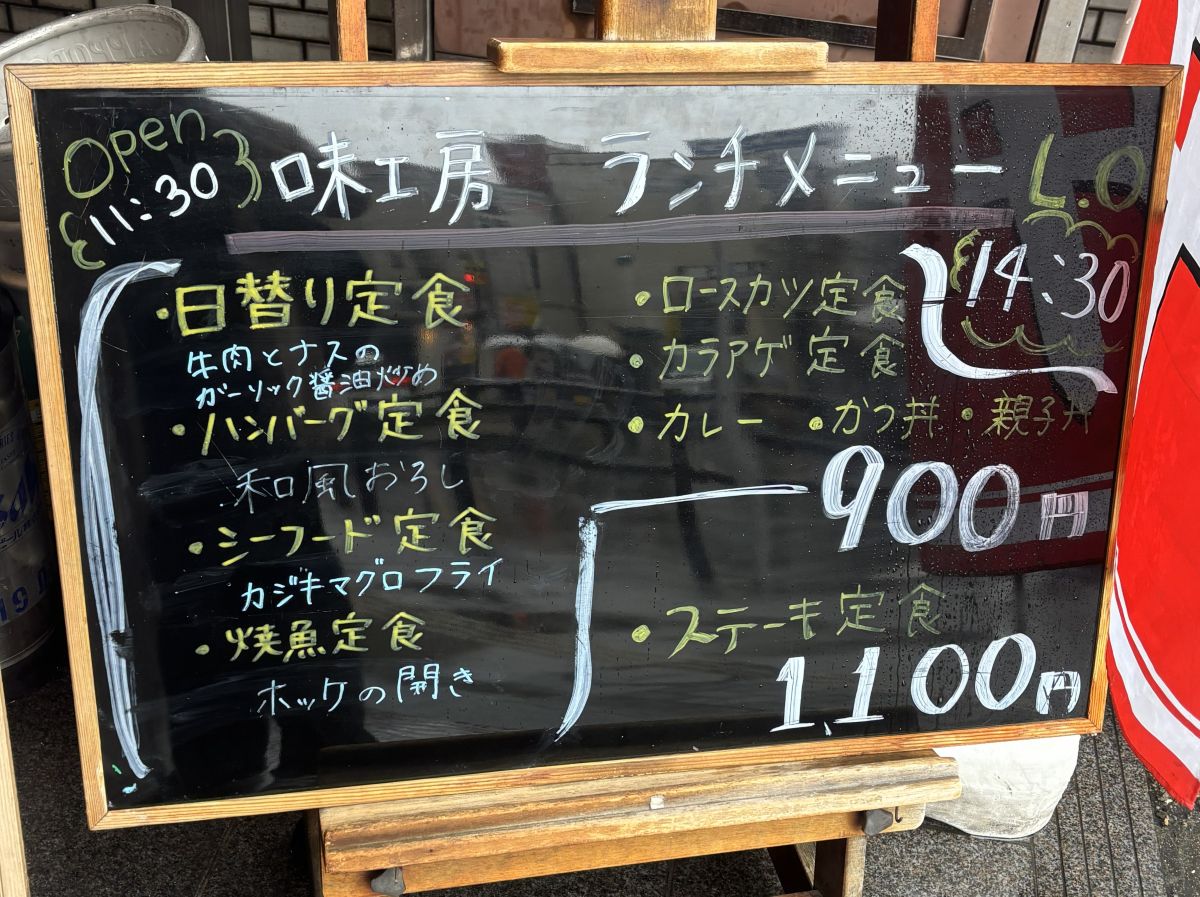 Open
11:30
味工房 ランチメニュー
L.O
14:30
・日替り定食
牛肉とナスの
ガーリック醤油炒め
・ハンバーグ定食
和風おろし
・シーフード定食
カジキマグロフライ
・焼魚定食
ホッケの開き
・ロースカツ定食
・カラアゲ定食
・カレー ・かつ丼 ・親子丼
900円
・ステーキ定食
1,100円